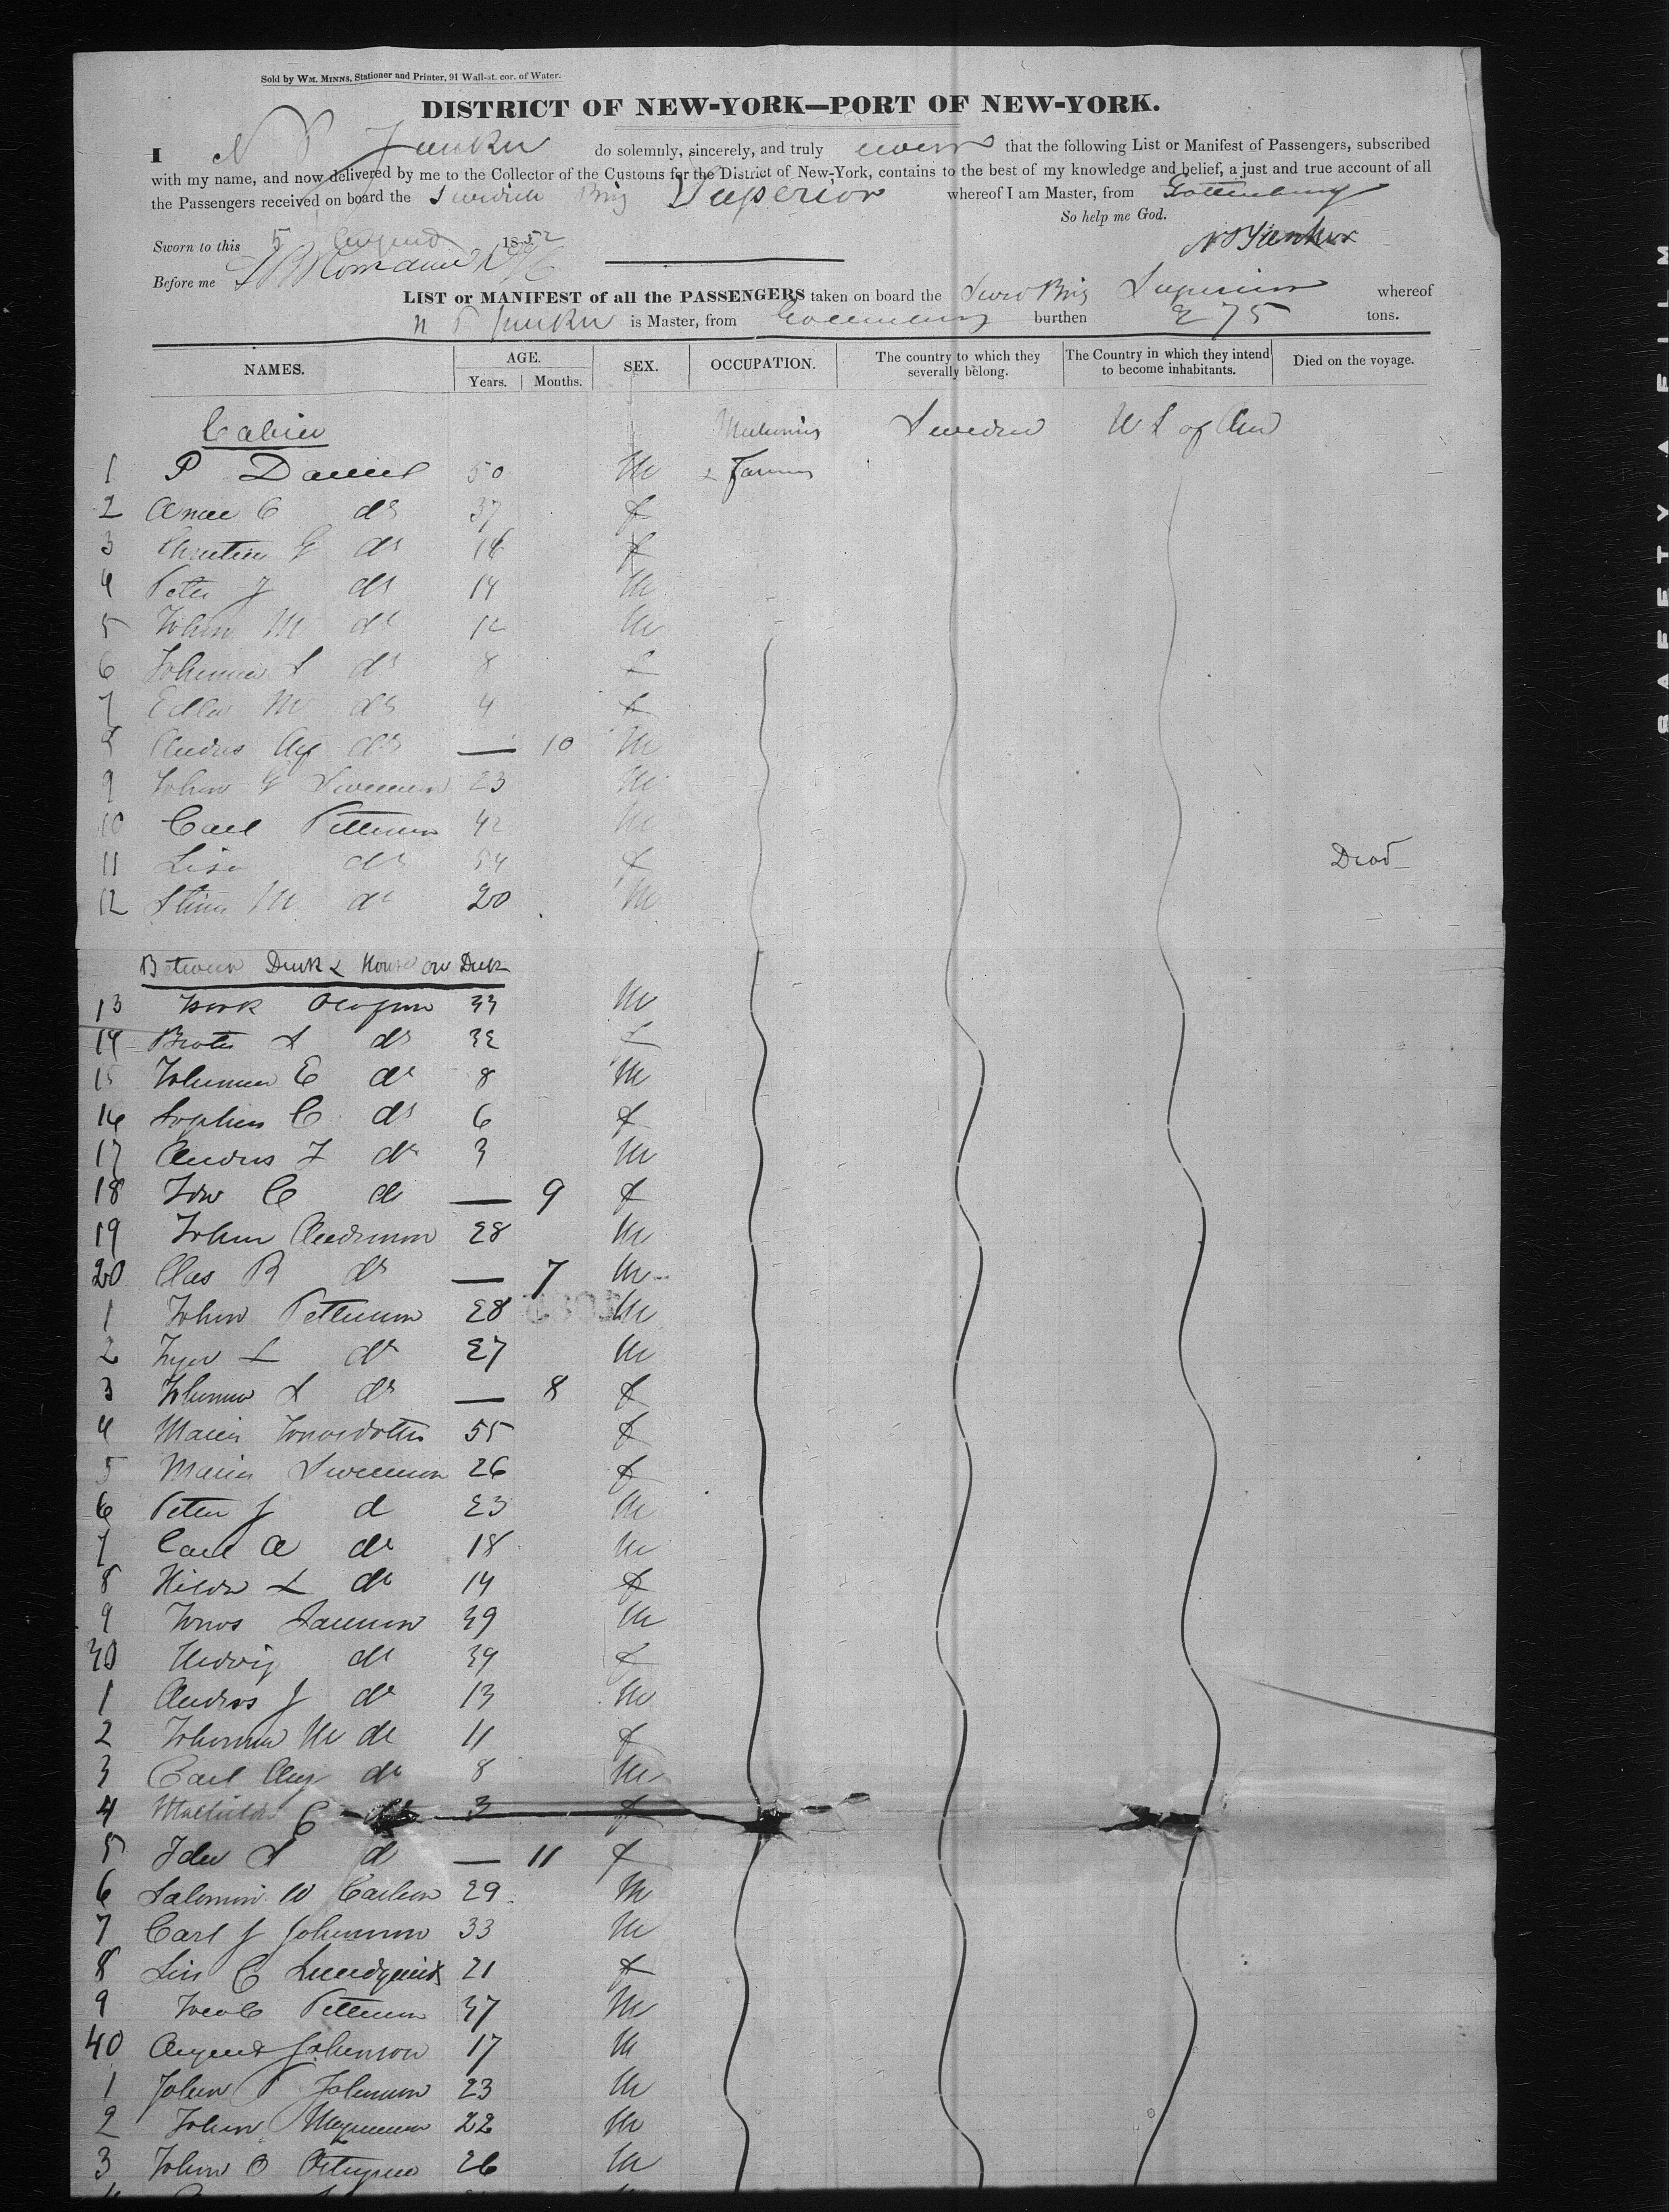 Sold by WM. MINNS, Stationer and Printer, 91 Wall-st. cor. of Water.
DISTRICT OF NEW-YORK—PORT OF NEW-YORK.
I N P Junker do solemnly, sincerely, and truly swear that the following List or Manifest of Passengers, subscribed
with my name, and now delivered by me to the Collector of the Customs for the District of New-York, contains to the best of my knowledge and belief, a just and true account of all
the Passengers received on board the Swedish Brig Superior whereof I am Master, from Gottenburg
So help me God.
Sworn to this 5 August 1852
N P Junker
Before me
LIST or MANIFEST of all the PASSENGERS taken on board the Swed Brig Superior whereof
N P Junker is Master, from Gottenburg burthen 275 tons.
NAMES. AGE. Years. Months. SEX. OCCUPATION. The country to which they severally belong. The Country in which they intend to become inhabitants. Died on the voyage.
Cabin Mechanics Sweden U S of Am
1 P Daniel 50 M & Farmers
2 C do 37 f
3 G do 16 f
4 Peter J do 14 M
5 Johan M do 12 M
6 Johanna S do 8 f
7 M do 4 f
8 Andres Aug do — 10 M
9 Johan G Swenson 23 M
10 Carl Petterson 42 M
11 Lisa do 54 f Died
12 M do 20 M
Between Deck & House on Deck
13 33 M
14 S do 32 f
15 E do 8 M
16 Sophia C do 6 f
17 Andres F do 3 M
18 C do — 9 f
19 Johan Anderson 28 M
20 Clas R do — 7 M
1 Johan Petterson 28 M
2 L do 27 M
3 Johanna S do — 8 f
4 Maria Jonasdotter 55 f
5 Maria Swenson 26 f
6 Peter J d 23 M
7 Carl A do 18 M
8 Hilda L do 14 f
9 Jonas 39 M
30 Hedvig do 39 f
1 Andros J do 13 M
2 Johanna M do 11 f
3 Carl Aug do 8 M
4 Mathilda C do 3 f
5 Ida S d — 11 f
6 Salomon W Carlson 29 M
7 Carl J Johanson 33 M
8 C Lundquist 21 f
9 Jacob Petterson 37 M
40 August Johanson 17 M
1 Johan P Johanson 23 M
2 Johan Magnuson 22 M
3 Johan O 26 M